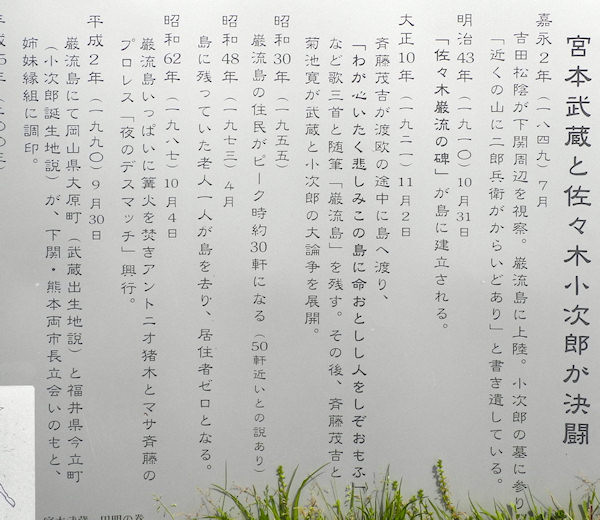 宮本武蔵と佐々木小次郎が決闘
嘉永2年（一八四九）7月
吉田松陰が下関周辺を視察。巌流島に上陸。小次郎の墓に参り
「近くの山に二郎兵衛がからいどあり」と書き遺している。
明治43年（一九一〇）10月31日
「佐々木巌流の碑」が島に建立される。
大正10年（一九二一）11月2日
斉藤茂吉が渡欧の途中に島へ渡り、
「わが心いたく悲しみこの島に命おとしし人をしぞおもふ」
など歌三首と随筆「巌流島」を残す。その後、斉藤茂吉と
菊池寛が武蔵と小次郎の大論争を展開。
昭和30年（一九五五）
巌流島の住民がピーク時約30軒になる（50軒近いとの説あり）
昭和48年（一九七三）4月
島に残っていた老人一人が島を去り、居住者ゼロとなる。
昭和62年（一九八七）10月4日
巌流島いっぱいに篝火を焚きアントニオ猪木とマサ斉藤の
プロレス「夜のデスマッチ」興行。
平成2年（一九九〇）9月30日
巌流島にて岡山県大原町（武蔵出生地説）と福井県今立町
（小次郎誕生地説）が、下関・熊本両市長立会いのもと、
姉妹縁組に調印。